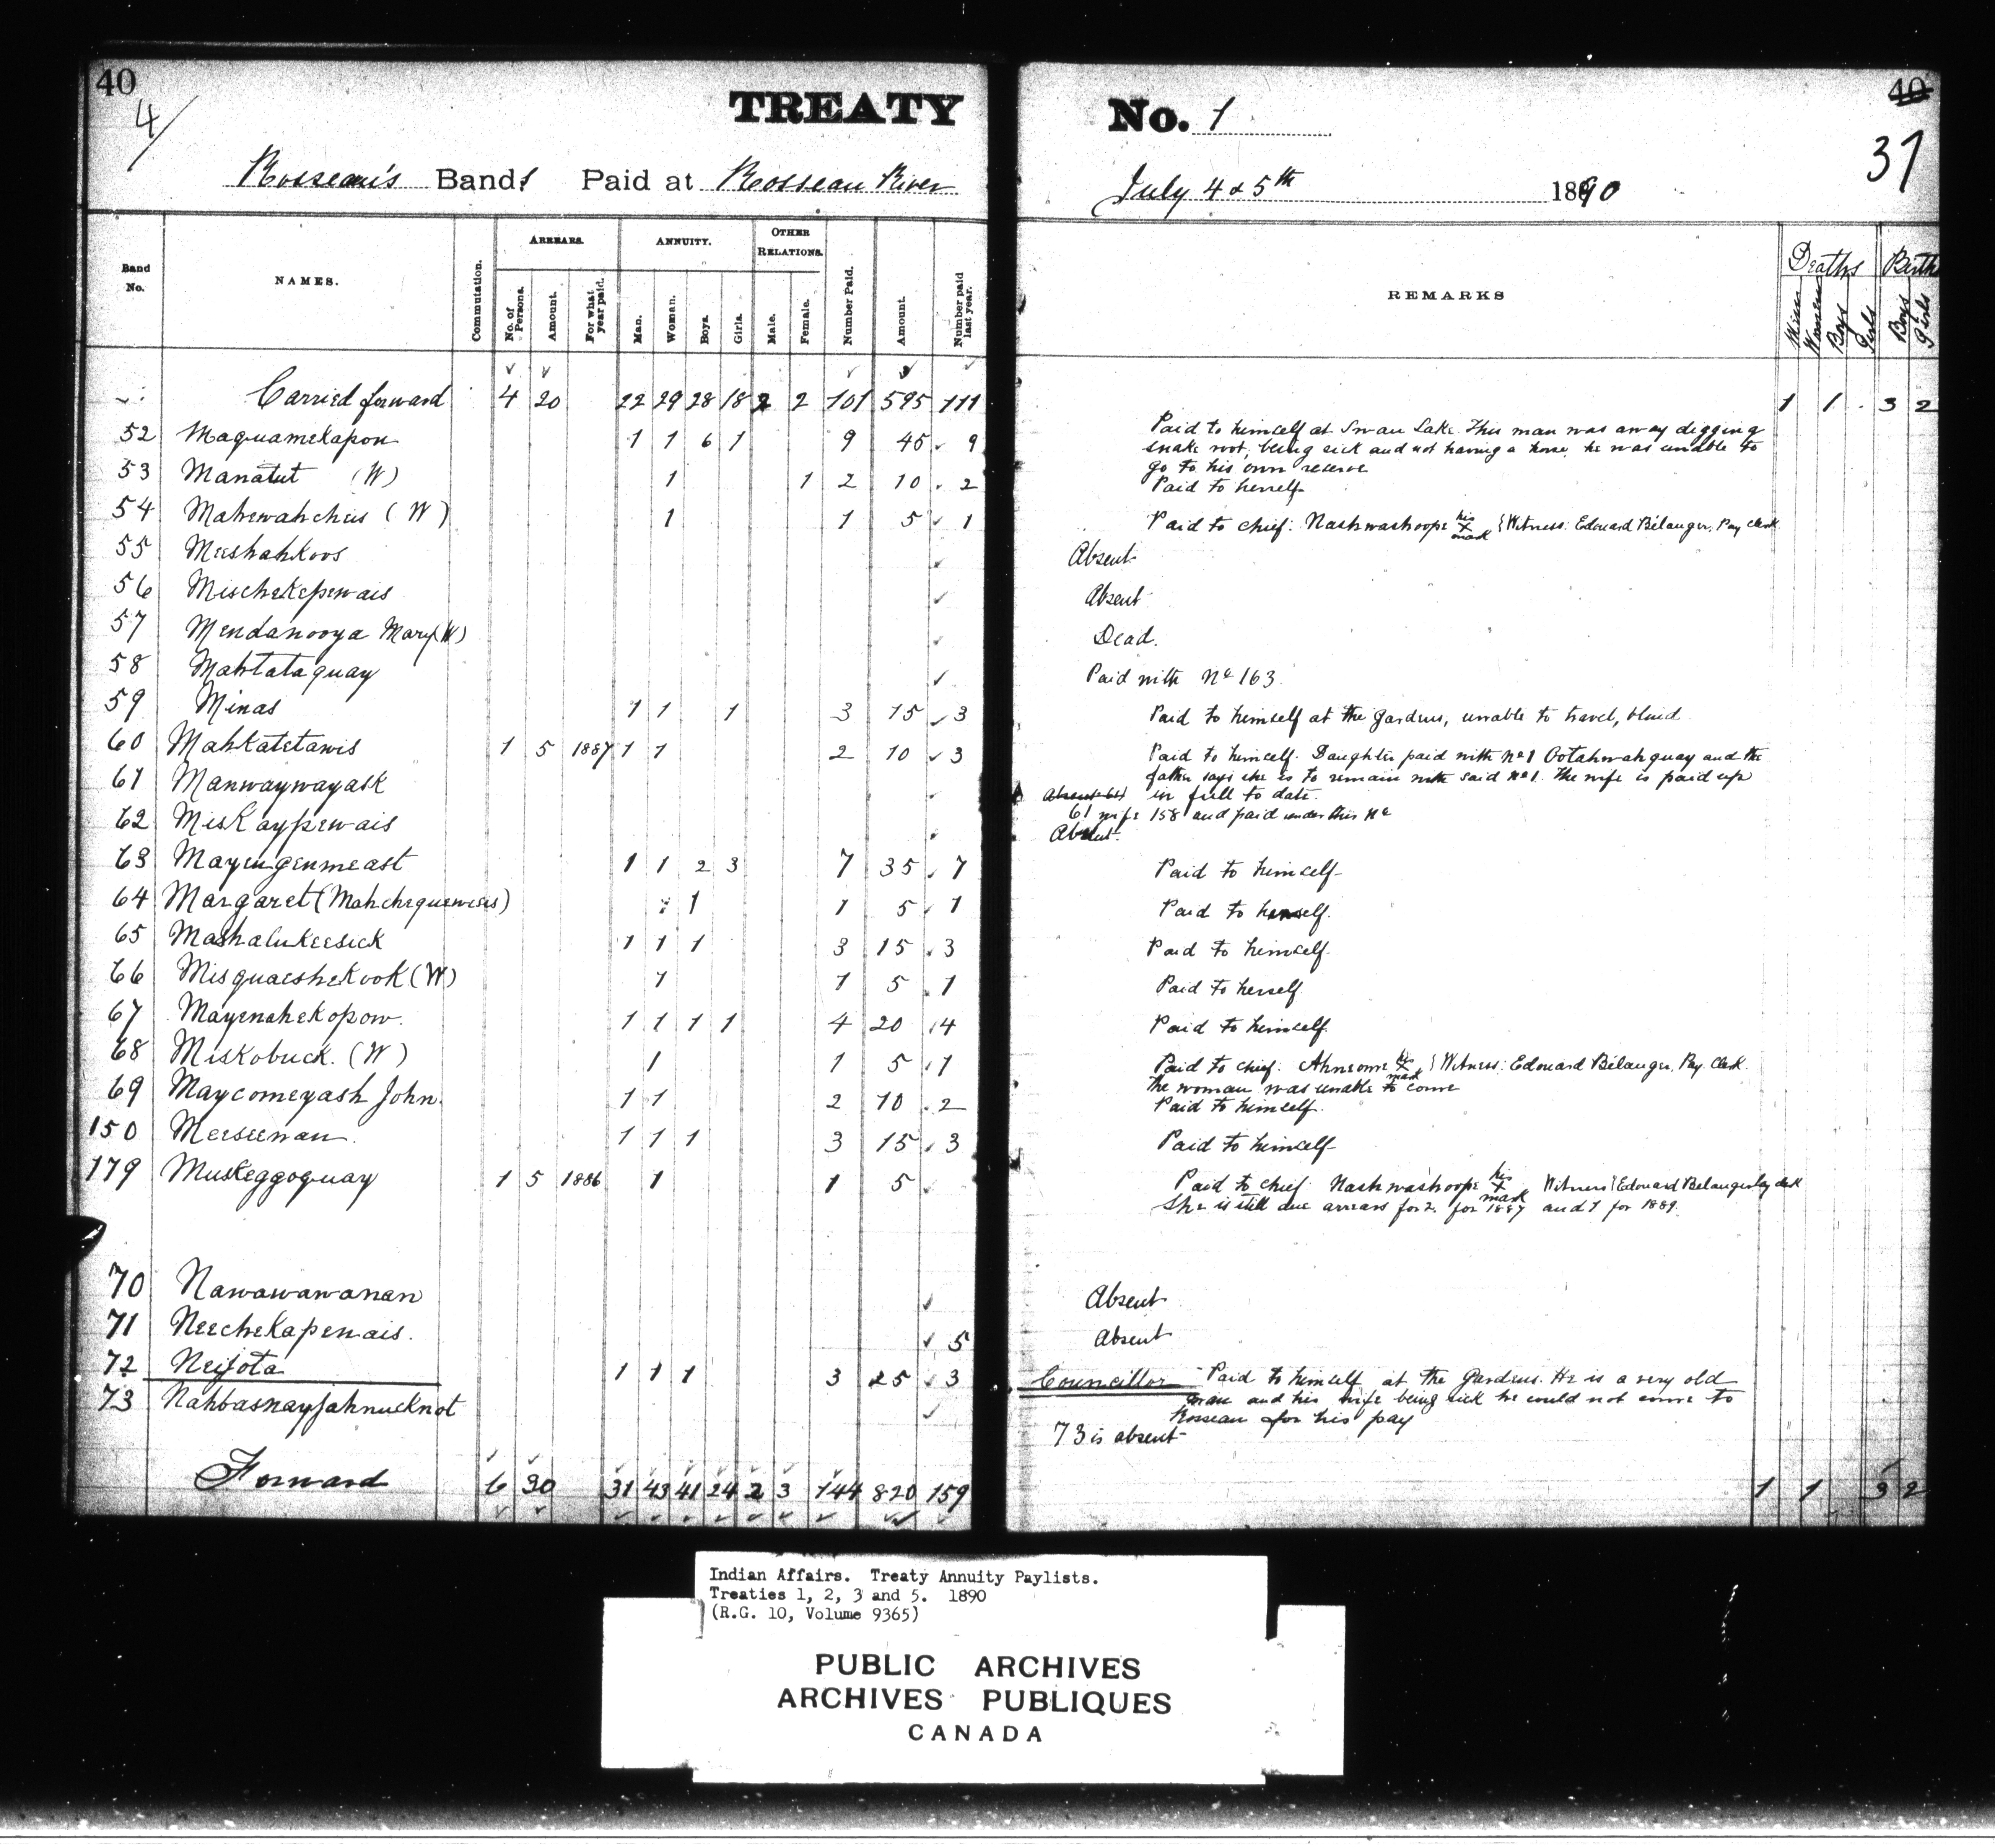 40
4/
TREATY
Rosseau's Bands Paid at Rosseau River
Band No. NAMES. Commutation. ARREARS. No. of Persons. Amount. For what year paid. ANNUITY. Man. Woman. Boys. Girls. OTHER RELATIONS. Male. Female. Number Paid. Amount. Number paid last year.
Carried forward 4 20 22 29 28 18 2 2 101 595 111
52 Maquamekapon 1 1 6 1 9 45 9
53 Manatut (W) 1 1 2 10 2
54 Mahewahcheis (W) 1 1 5 1
55 Meeshahkoos
56 Mischekepenais
57 Mendanooya Mary (W)
58 Mahtataquay
59 Minas 1 1 1 3 15 3
60 Mahkatetawis 1 5 1887 1 1 2 10 3
61 Manwaywayask
62 Miskaypenais
63 Mayengenmeast 1 1 2 3 7 35 7
64 Margaret (Mahchequewesis) 1 1 5 1
65 Mashalukeesick 1 1 1 3 15 3
66 Misquaeshekook (W) 1 1 5 1
67 Mayenahekopow. 1 1 1 1 4 20 4
68 Miskobuck. (W) 1 1 5 1
69 Maycomeyash John. 1 1 2 10 2
150 Meeseenan. 1 1 1 3 15 3
179 Muskeggoquay 1 5 1886 1 1 5
70 Nawawawanan
71 Neechekapenais. 5
72 Neijota 1 1 1 3 25 3
73 Nahbasnayjahnucknot
Forward 6 30 31 43 41 24 2 3 144 820 159
No. 1
40
37
July 4 & 5th 1890
REMARKS Deaths Births
Men Women Boys Girls Boys Girls
1 1 3 2
Paid to himself at Swan Lake. This man was away digging
snake root, being sick and not having a horse, he was unable to
go to his own reserve
Paid to herself
Paid to chief: Nashwashoope his X mark } Witness: Edouard Bélanger, Pay Clerk
Absent
Absent
Dead.
Paid with No 163
Paid to himself at the Gardens, unable to travel, blind
Paid to himself. Daughter paid with No 1 Ootahwahquay and the
father says she is to remain with said No 1. The wife is paid up
Absent 61 in full to date.
61 wife 158 and paid under this No
Absent.
Paid to himself
Paid to herself.
Paid to himself.
Paid to herself
Paid to himself
Paid to chief: Ahneome his X mark } Witness: Edouard Bélanger, Pay Clerk.
The woman was unable to come
Paid to himself.
Paid to himself
Paid to chief Nashwashoope his X mark Witness } Edouard Belanger Pay clerk
She is still due arrears for 2. for 1887 and 1 for 1889.
Absent
Absent
Councillor Paid to himself at the Gardens. He is a very old
man and his wife being sick he could not come to
Rosseau for his pay
73 is absent
1 1 3 2
Indian Affairs. Treaty Annuity Paylists.
Treaties 1, 2, 3 and 5. 1890
(R.G. 10, Volume 9365)
PUBLIC ARCHIVES
ARCHIVES PUBLIQUES
CANADA